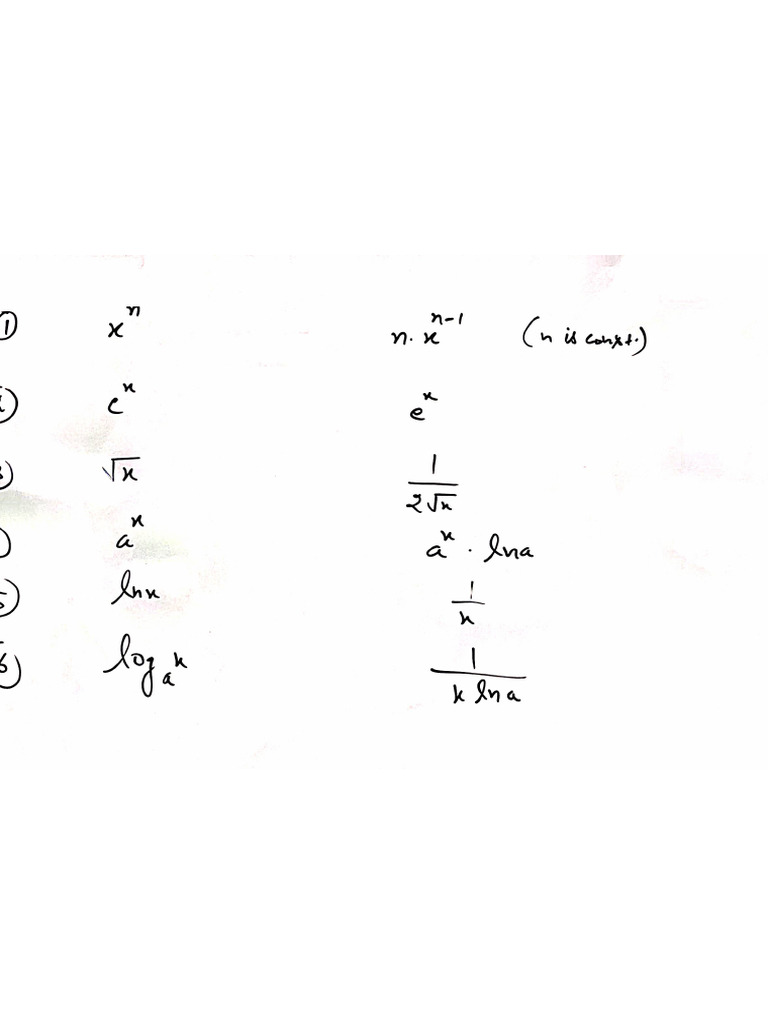 ① xⁿ n·xⁿ⁻¹ (n is const.)
② eˣ eˣ
③ √x 1/(2√x)
aˣ aˣ · ln a
⑤ ln x 1/x
⑥ logₐx 1/(x ln a)